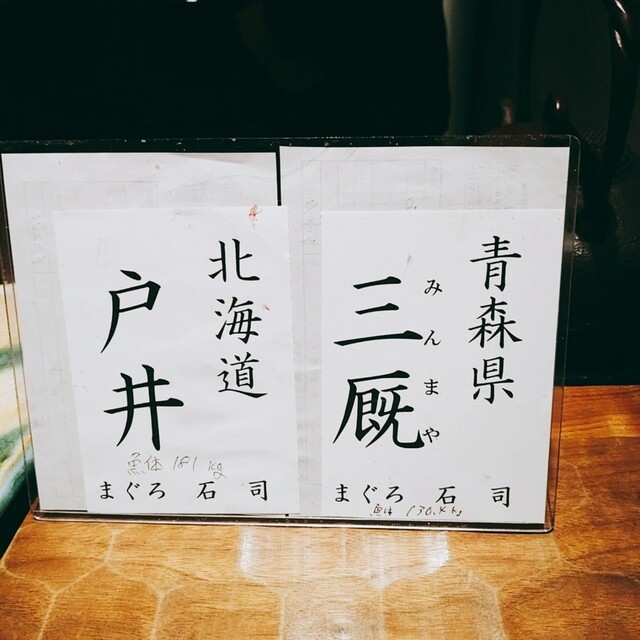 青森県
三厩
みんまや
まぐろ 石司
魚体 130.4kg
北海道
戸井
魚体 181kg
まぐろ 石司